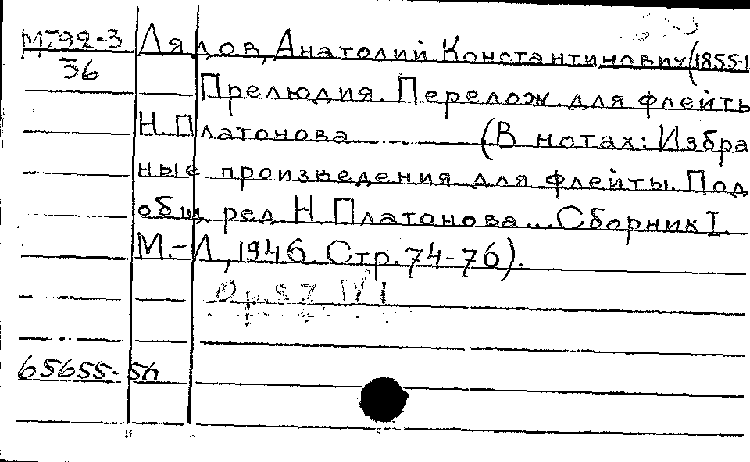 МТ92-3 Лядов, Анатолий Константинович (1855-1
36
Прелюдия. Перелож. для флейты
Н. Платонова (В нотах: Избра
ные произведения для флейты. Под
общ. ред. Н. Платонова... Сборник I.
М.-Л., 1946. Стр. 74-76).
Op. 57 №1
65655-56